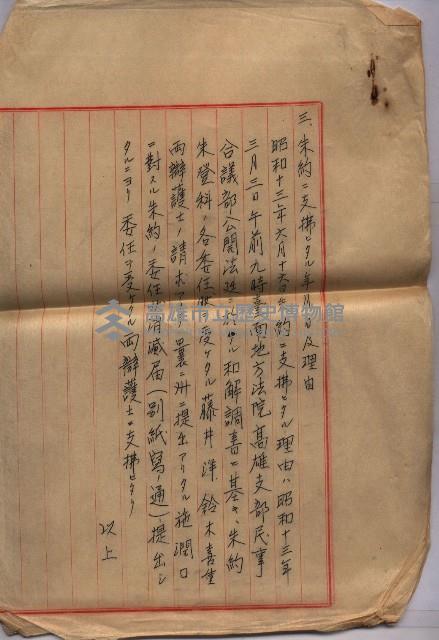 三、朱約ニ支拂ヒタル年月日及理由
昭和十三年六月十六日朱約ニ支拂ヒタル理由ハ昭和十三年
三月三日午前九時臺南地方法院高雄支部民事
合議部ノ公開法廷ニ於ケル和解調書ニ基キ、朱約
朱登科ノ各委任ヲ受ケタル藤井洋、鈴木喜
両辯護士ノ請求アリ曩ニ州ニ提出アリタル施潤口
ニ對スル朱約ノ委任消滅届(別紙寫ノ通)提出シ
タルニヨリ委任ヲ受ケタル両辯護士ニ支拂ヒタリ
以上
高雄市立歷史博物館